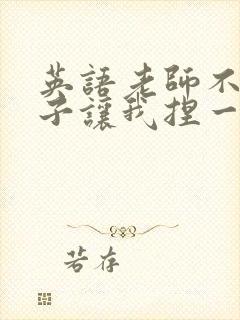 英語老師不
子讓我捏一
若存